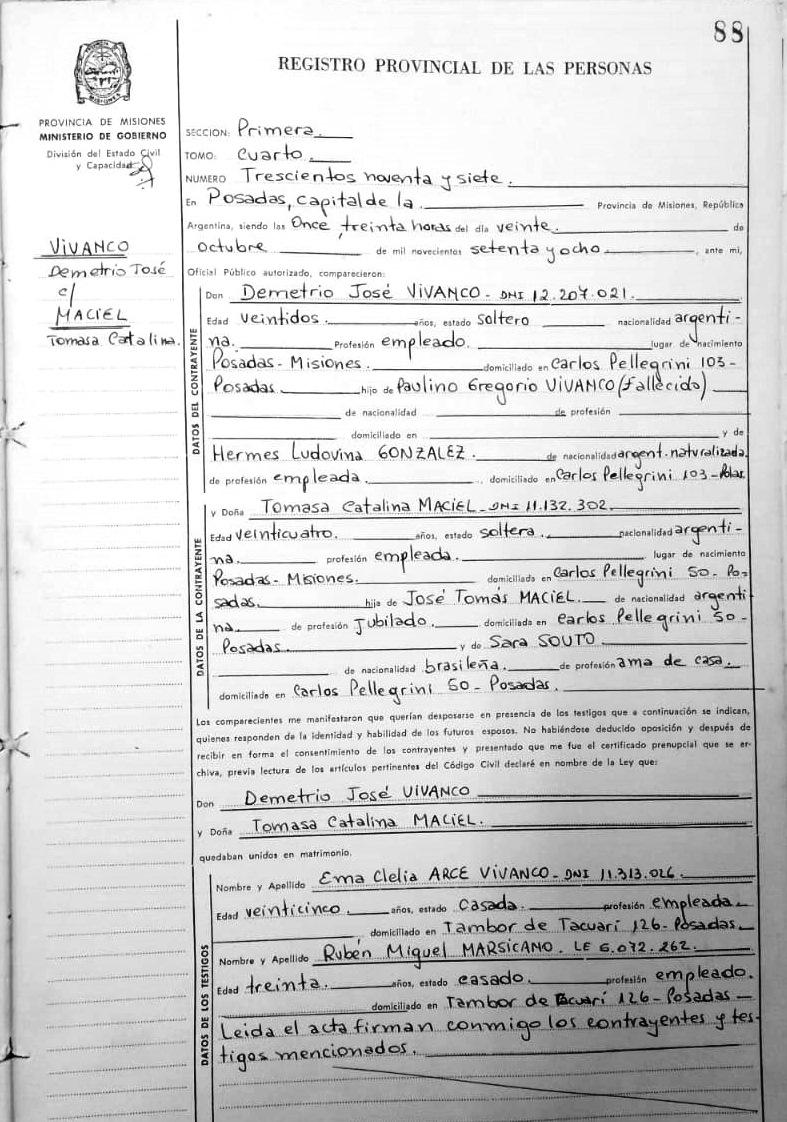 88
REGISTRO PROVINCIAL DE LAS PERSONAS
MISIONES
PROVINCIA DE MISIONES
MINISTERIO DE GOBIERNO
División del Estado Civil
y Capacidad
VIVANCO
Demetrio José
c/
MACIEL
Tomasa Catalina.
SECCION: Primera.
TOMO: Cuarto.
NUMERO Trescientos noventa y siete.
En Posadas, capital de la. Provincia de Misiones, República
Argentina, siendo las Once, treinta horas del día veinte. de
octubre de mil novecientos setenta y ocho, ante mi,
Oficial Público autorizado, comparecieron:
DATOS DEL CONTRAYENTE
Don Demetrio José VIVANCO - DNI 12.207.021.
Edad veintidos. años, estado soltero nacionalidad argenti-
na. Profesión empleado. lugar de nacimiento
Posadas - Misiones. domiciliado en Carlos Pellegrini 103 -
Posadas. hijo de Paulino Gregorio VIVANCO (fallecido)
de nacionalidad de profesión
domiciliado en y de
Hermes Ludovina GONZALEZ. de nacionalidad argent. naturalizada.
de profesión empleada. domiciliado en Carlos Pellegrini 103 - Pdas.
DATOS DE LA CONTRAYENTE
y Doña Tomasa Catalina MACIEL - DNI 11.132.302.
Edad veinticuatro. años, estado soltera. nacionalidad argenti-
na. profesión empleada. lugar de nacimiento
Posadas - Misiones. domiciliada en Carlos Pellegrini 50 - Po-
sadas. hija de José Tomás MACIEL. de nacionalidad argenti
na. de profesión Jubilado. domiciliada en Carlos Pellegrini 50 -
Posadas. y de Sara SOUTO.
de nacionalidad brasileña. de profesión ama de casa.
domiciliado en Carlos Pellegrini 50 - Posadas.
Los comparecientes me manifestaron que querían desposarse en presencia de los testigos que a continuación se indican,
quienes responden de la identidad y habilidad de los futuros esposos. No habiéndose deducido oposición y después de
recibir en forma el consentimiento de los contrayentes y presentado que me fue el certificado prenupcial que se ar-
chiva, previa lectura de los artículos pertinentes del Código Civil declaré en nombre de la Ley que:
Don Demetrio José VIVANCO
y Doña Tomasa Catalina MACIEL.
quedaban unidos en matrimonio.
DATOS DE LOS TESTIGOS
Nombre y Apellido Ema Clelia ARCE VIVANCO - DNI 11.313.026.
Edad veinticinco. años, estado casada. profesión empleada.
domiciliado en Tambor de Tacuarí 126 - Posadas.
Nombre y Apellido Rubén Miguel MARSICANO. LE 6.072.262.
Edad treinta. años, estado casado. profesión empleado.
domiciliado en Tambor de Tacuarí 126 - Posadas -
Leida el acta firman conmigo los contrayentes y tes-
tigos mencionados.